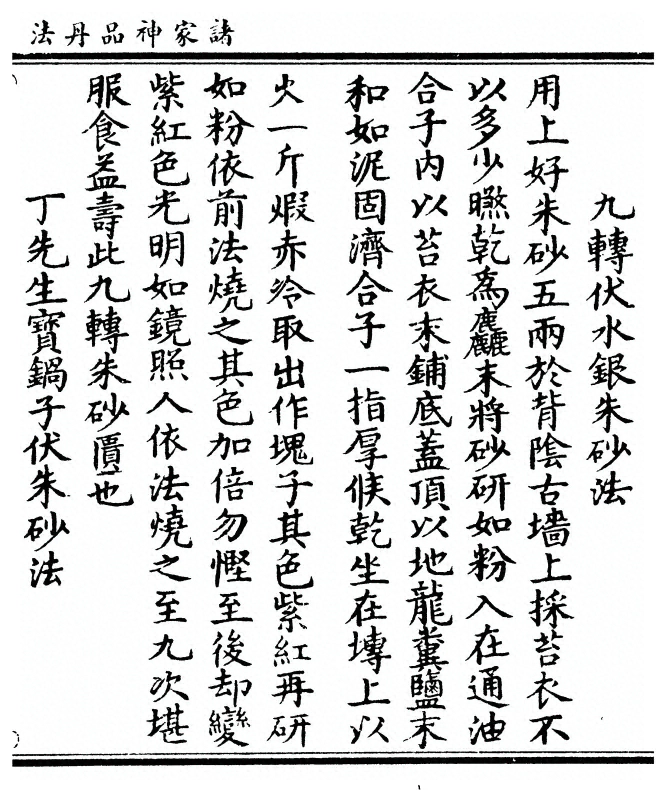 諸家神品丹法
九轉伏水銀朱砂法
用上好朱砂五兩於背陰古墻上採苔衣不
以多少㬠乾為麤末將砂研如粉入在通油
合子內以苔衣末鋪底蓋頂以地龍糞鹽末
和如泥固濟合子一指厚候乾坐在塼上以
火一斤煆赤冷取出作塊子其色紫紅再研
如粉依前法燒之其色加倍勿慳至後却變
紫紅色光明如鏡照人依法燒之至九次堪
服食益壽此九轉朱砂匱也
丁先生寶鍋子伏朱砂法